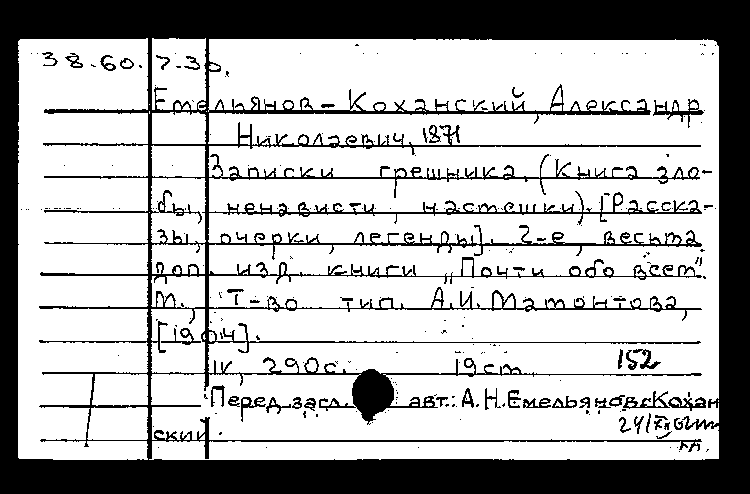 38.60.7-30.
Емельянов-Коханский, Александр
Николаевич, 1871
Записки грешника. (Книга зло-
бы, ненависти, насмешки). [Расска-
зы, очерки, легенды]. 2-е, весьма
доп. изд. книги „Почти обо всем".
М., Т-во тип. А.И. Мамонтова,
[1904].
IV, 290с. 19см 152
Перед загл. авт.: А.Н.Емельянов-Кохан
ский.